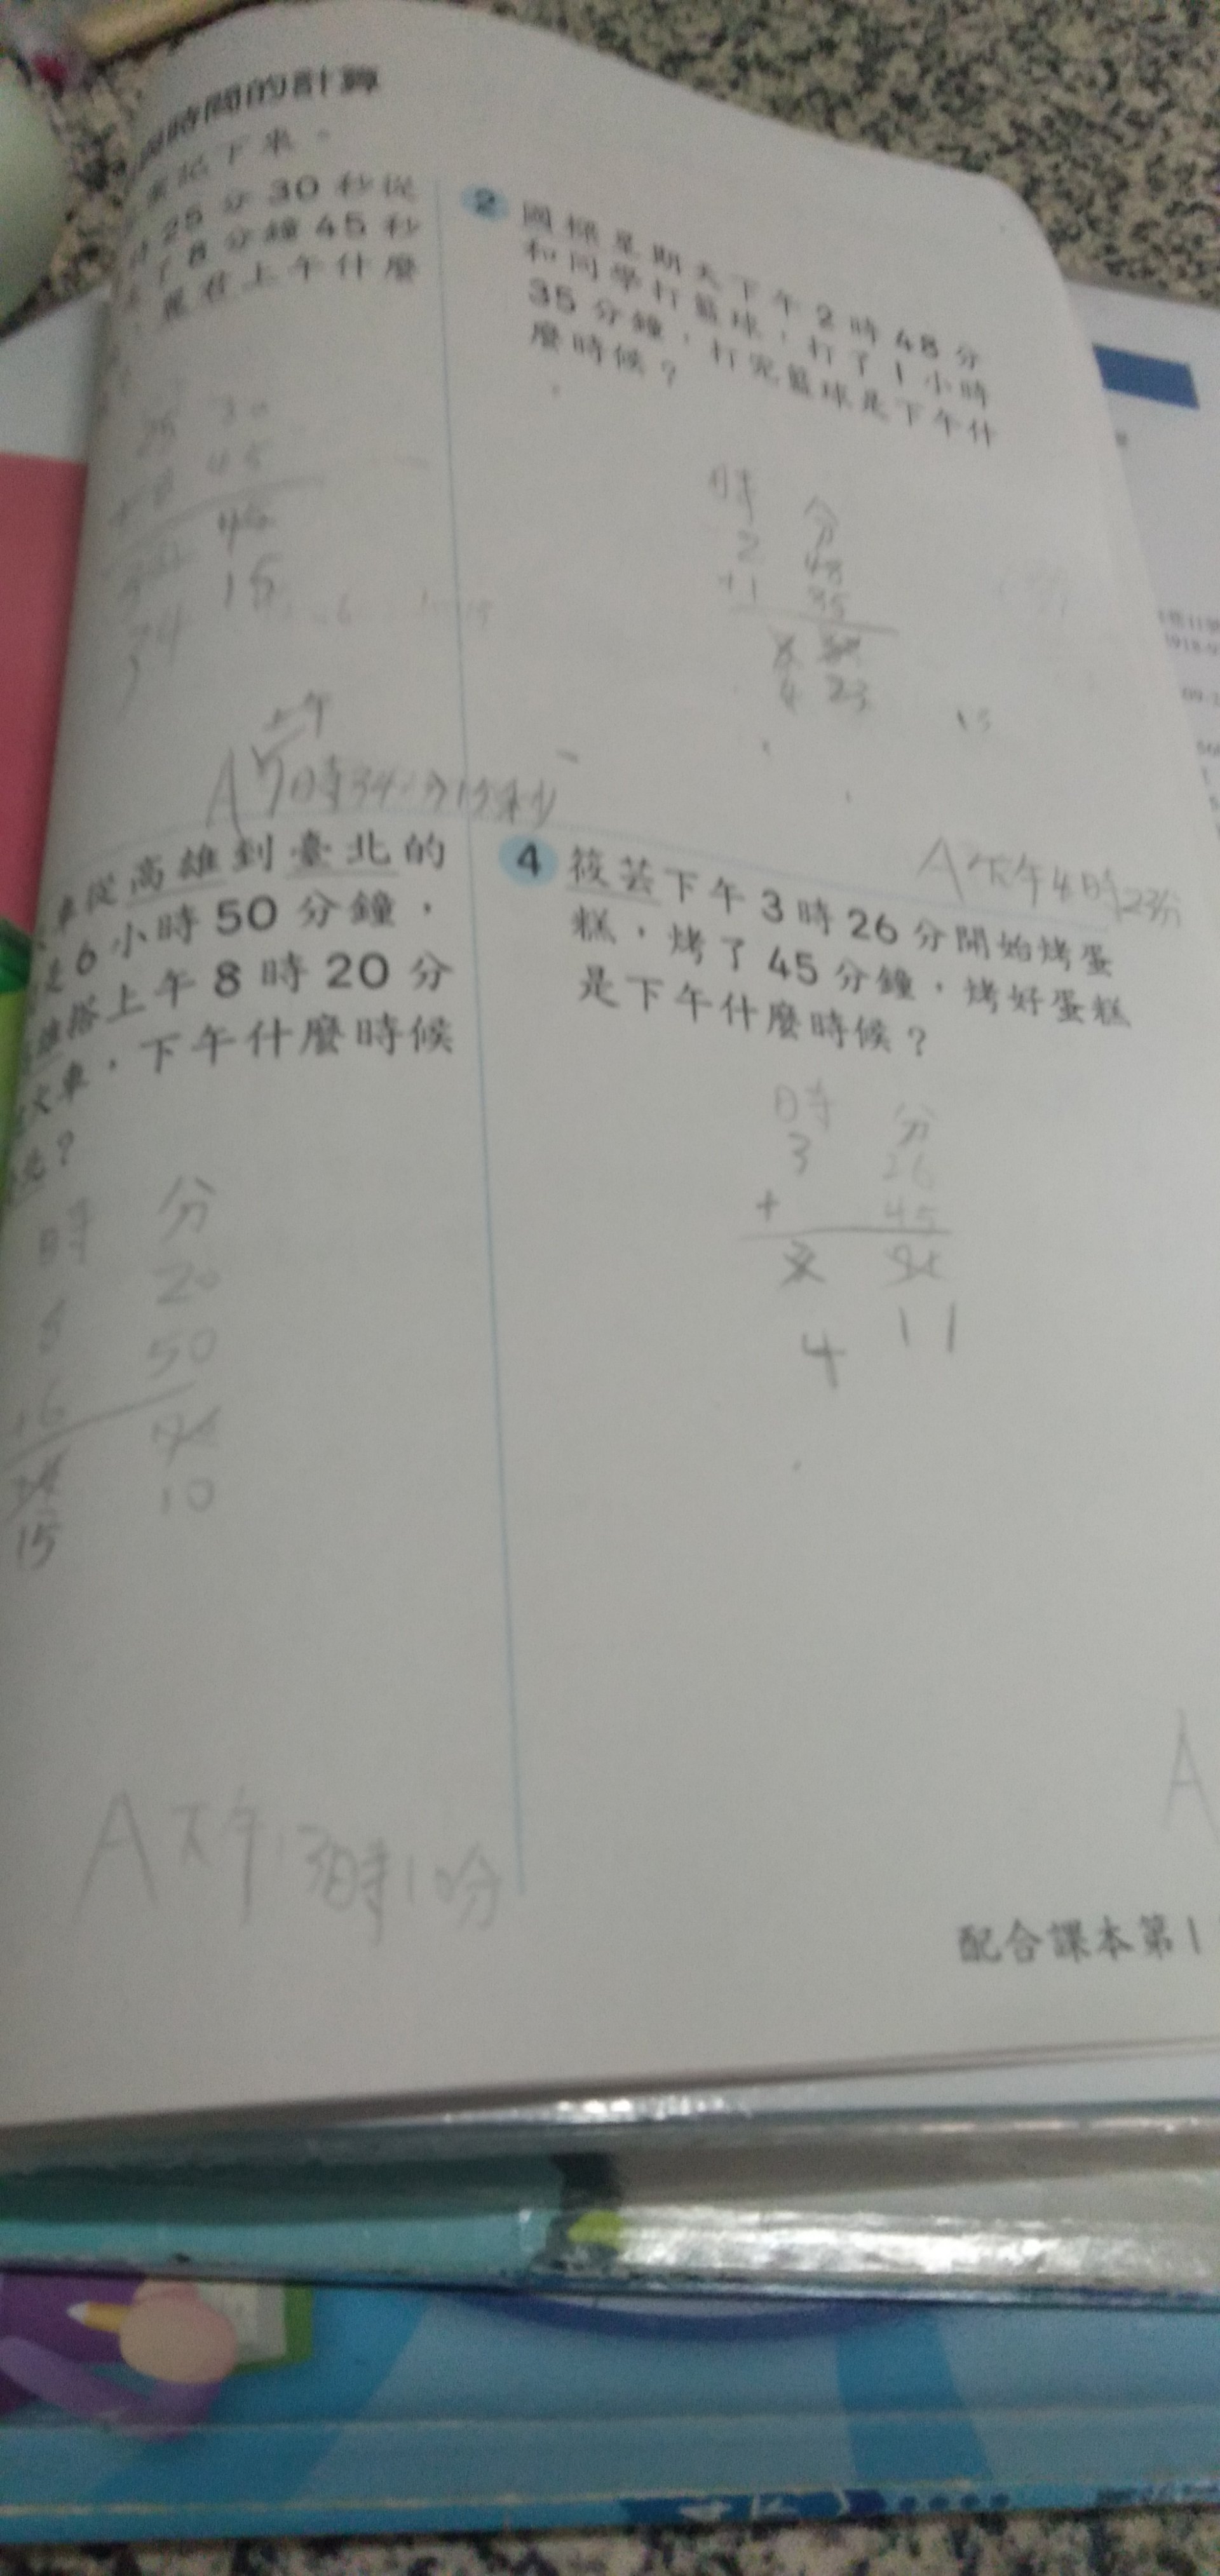 時間的計算
記下來。
25分30秒從
了8分鐘45秒
，是在上午什麼
25 30
+8 45
15
34
上午
A 7時34分15秒
2
星期天下午2時48分
和同學打籃球，打了1小時
35分鐘，打完籃球是下午什
麼時候？
時 分
2 48
+1 35
4 23
A下午4時23分
車從高雄到臺北的
6小時50分鐘，
搭上午8時20分
火車，下午什麼時候
北？
時 分
8 20
+6 50
15 10
A下午3時10分
4 筱芸下午3時26分開始烤蛋
糕，烤了45分鐘，烤好蛋糕
是下午什麼時候？
時 分
3 26
+ 45
4 11
A
配合課本第1